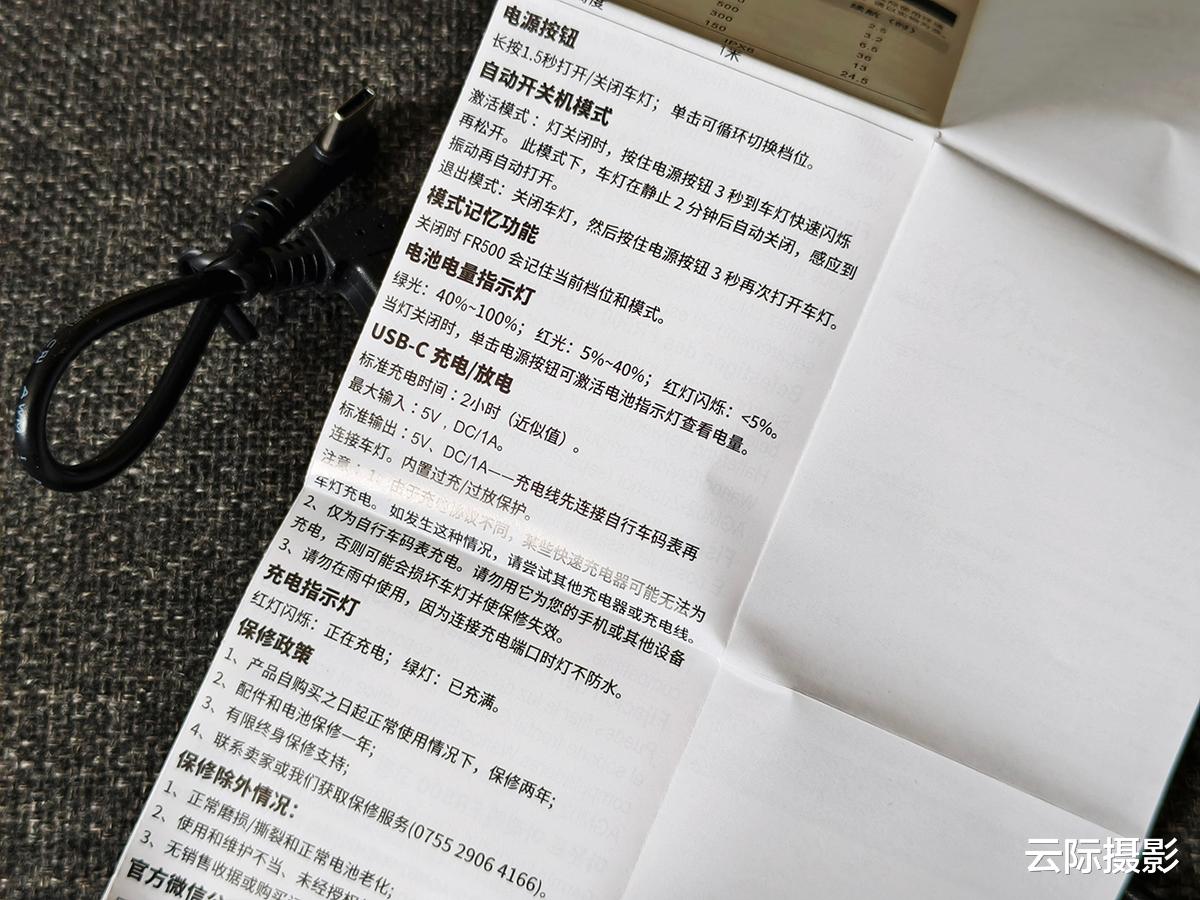 500
300
150
IPX6
续航（时）
2.5
3.2
6.5
36
13
24.5
电源按钮
长按1.5秒打开/关闭车灯；单击可循环切换档位。
自动开关机模式
激活模式：灯关闭时，按住电源按钮 3 秒到车灯快速闪烁
再松开。此模式下，车灯在静止 2 分钟后自动关闭，感应到
振动再自动打开。
退出模式：关闭车灯，然后按住电源按钮 3 秒再次打开车灯。
模式记忆功能
关闭时 FR500 会记住当前档位和模式。
电池电量指示灯
绿光：40%~100%；红光：5%~40%；红灯闪烁：<5%。
当灯关闭时，单击电源按钮可激活电池指示灯查看电量。
USB-C 充电/放电
标准充电时间：2小时（近似值）。
最大输入：5V，DC/1A。
标准输出：5V、DC/1A——充电线先连接自行车码表再
连接车灯。内置过充/过放保护。
注意：1、由于充电协议不同，某些快速充电器可能无法为
车灯充电。如发生这种情况，请尝试其他充电器或充电线。
2、仅为自行车码表充电。请勿用它为您的手机或其他设备
充电，否则可能会损坏车灯并使保修失效。
3、请勿在雨中使用，因为连接充电端口时灯不防水。
充电指示灯
红灯闪烁：正在充电；绿灯：已充满。
保修政策
1、产品自购买之日起正常使用情况下，保修两年；
2、配件和电池保修一年；
3、有限终身保修支持；
4、联系卖家或我们获取保修服务(0755 2906 4166)。
保修除外情况：
1、正常磨损/撕裂和正常电池老化；
2、使用和维护不当、未经授权
3、无销售收据或购买
官方微信公
云际摄影